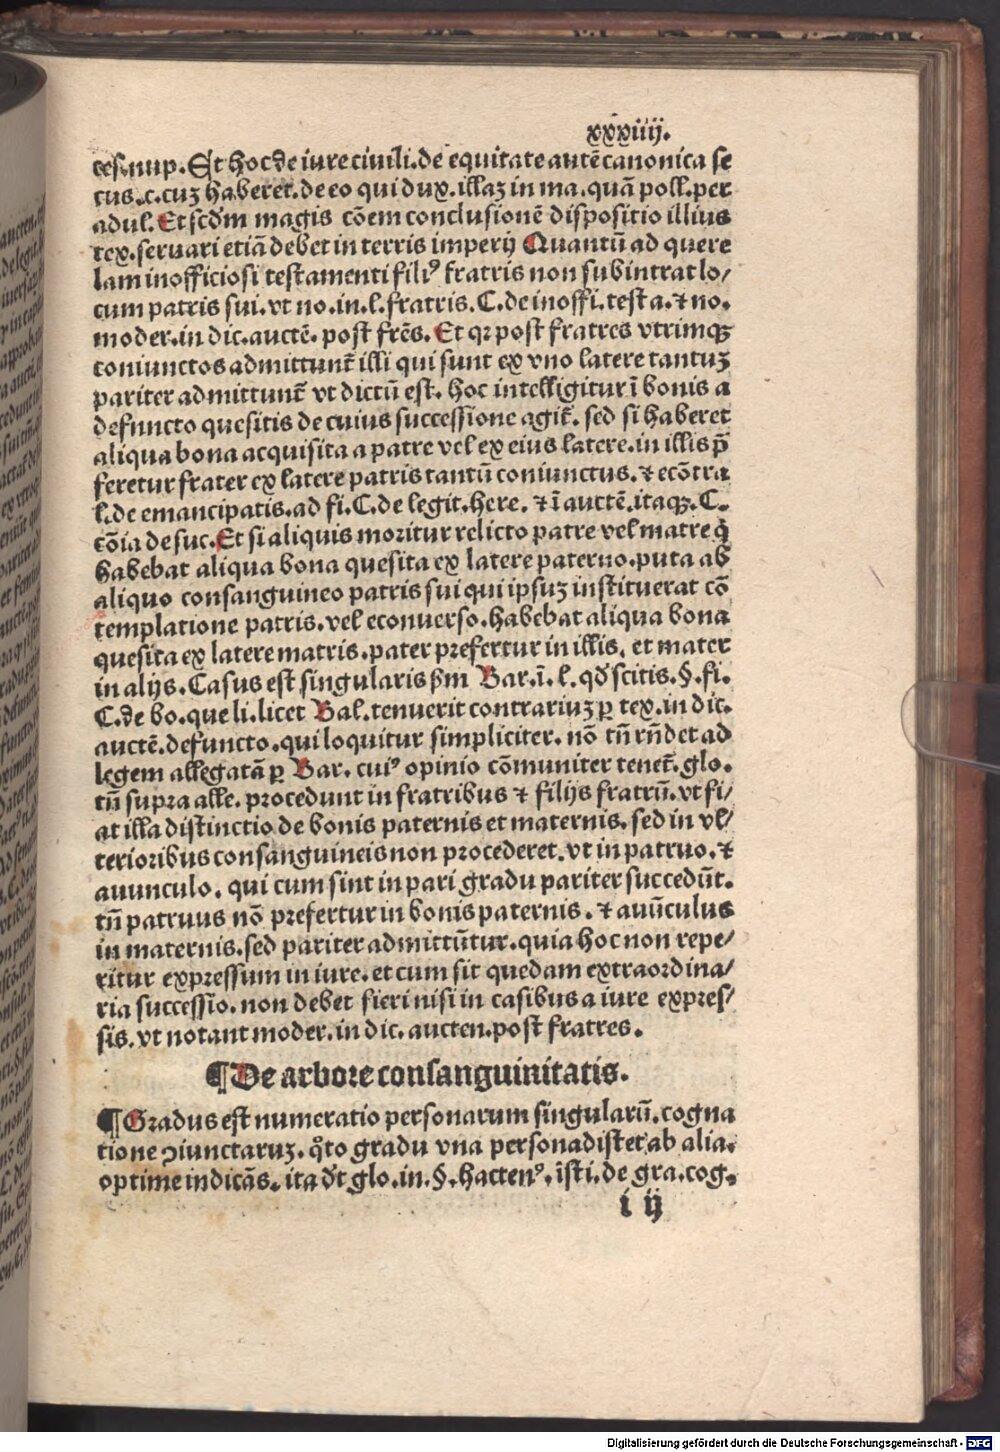 xxxiiij.
ces.nup. Et hoc de iure ciuili. de equitate autē canonica se
cus. c. cuȝ haberet. de eo qui dux. illaȝ in ma. quā poll. per
adul. Et scd̄m magis cōem conclusionē dispositio illius
tex. seruari etiā debet in terris imperij Quantū ad quere
lam inofficiosi testamenti filiꝰ fratris non subintrat lo/
cum patris sui. vt no. in. l. fratris. C. de inoffi. testa. ⁊ no.
moder. in dic. auctē. post fr̄es. Et qꝛ post fratres vtrimqȝ
coniunctos admittunt̄ illi qui sunt ex vno latere tantuȝ
pariter admittunt̄ vt dictū est. hoc intelligitur ī bonis a
defuncto quesitis de cuius successione agit̄. sed si haberet
aliqua bona acquisita a patre vel ex eius latere. in illis p̄
feretur frater ex latere patris tantū coniunctus. ⁊ ecōtra
l. de emancipatis. ad fi. C. de legit. here. ⁊ ī auctē. itaqȝ. C.
cōia de suc. Et si aliquis moritur relicto patre vel matre q̇
habebat aliqua bona quesita ex latere paterno. puta ab
aliquo consanguineo patris sui qui ipsuȝ instituerat cō
templatione patris. vel econuerso. habebat aliqua bona
quesita ex latere matris. pater prefertur in illis. et mater
in alijs. Casus est singularis ẜm Bar. ī. l. qd̄ scitis. §. fi.
C. de bo. que li. licet Bal. tenuerit contrariuȝ ꝑ tex. in dic.
auctē. defuncto. qui loquitur simpliciter. nō tn̄ rn̄det ad
legem allegatā ꝑ Bar. cuiꝰ opinio cōmuniter tenet̄. glo.
tn̄ supra alle. procedunt in fratribus ⁊ filijs fratrū. vt fi/
at illa distinctio de bonis paternis et maternis. sed in vl/
terioribus consanguineis non procederet. vt in patruo. ⁊
auunculo. qui cum sint in pari gradu pariter succedūt.
tn̄ patruus nō prefertur in bonis paternis. ⁊ auūculus
in maternis. sed pariter admittūtur. quia hoc non repe/
ritur expressum in iure. et cum sit quedam extraordina/
ria successio. non debet fieri nisi in casibus a iure expres/
sis. vt notant moder. in dic. aucten. post fratres.
¶De arbore consanguinitatis.
¶Gradus est numeratio personarum singularū. cogna
tione ↄiunctaruȝ. qͦto gradu vna persona distet ab alia.
optime indicās. ita d̄t glo. in. §. hactenꝰ. īsti. de gra. cog.
i ij
Digitalisierung gefördert durch die Deutsche Forschungsgemeinschaft - DFG